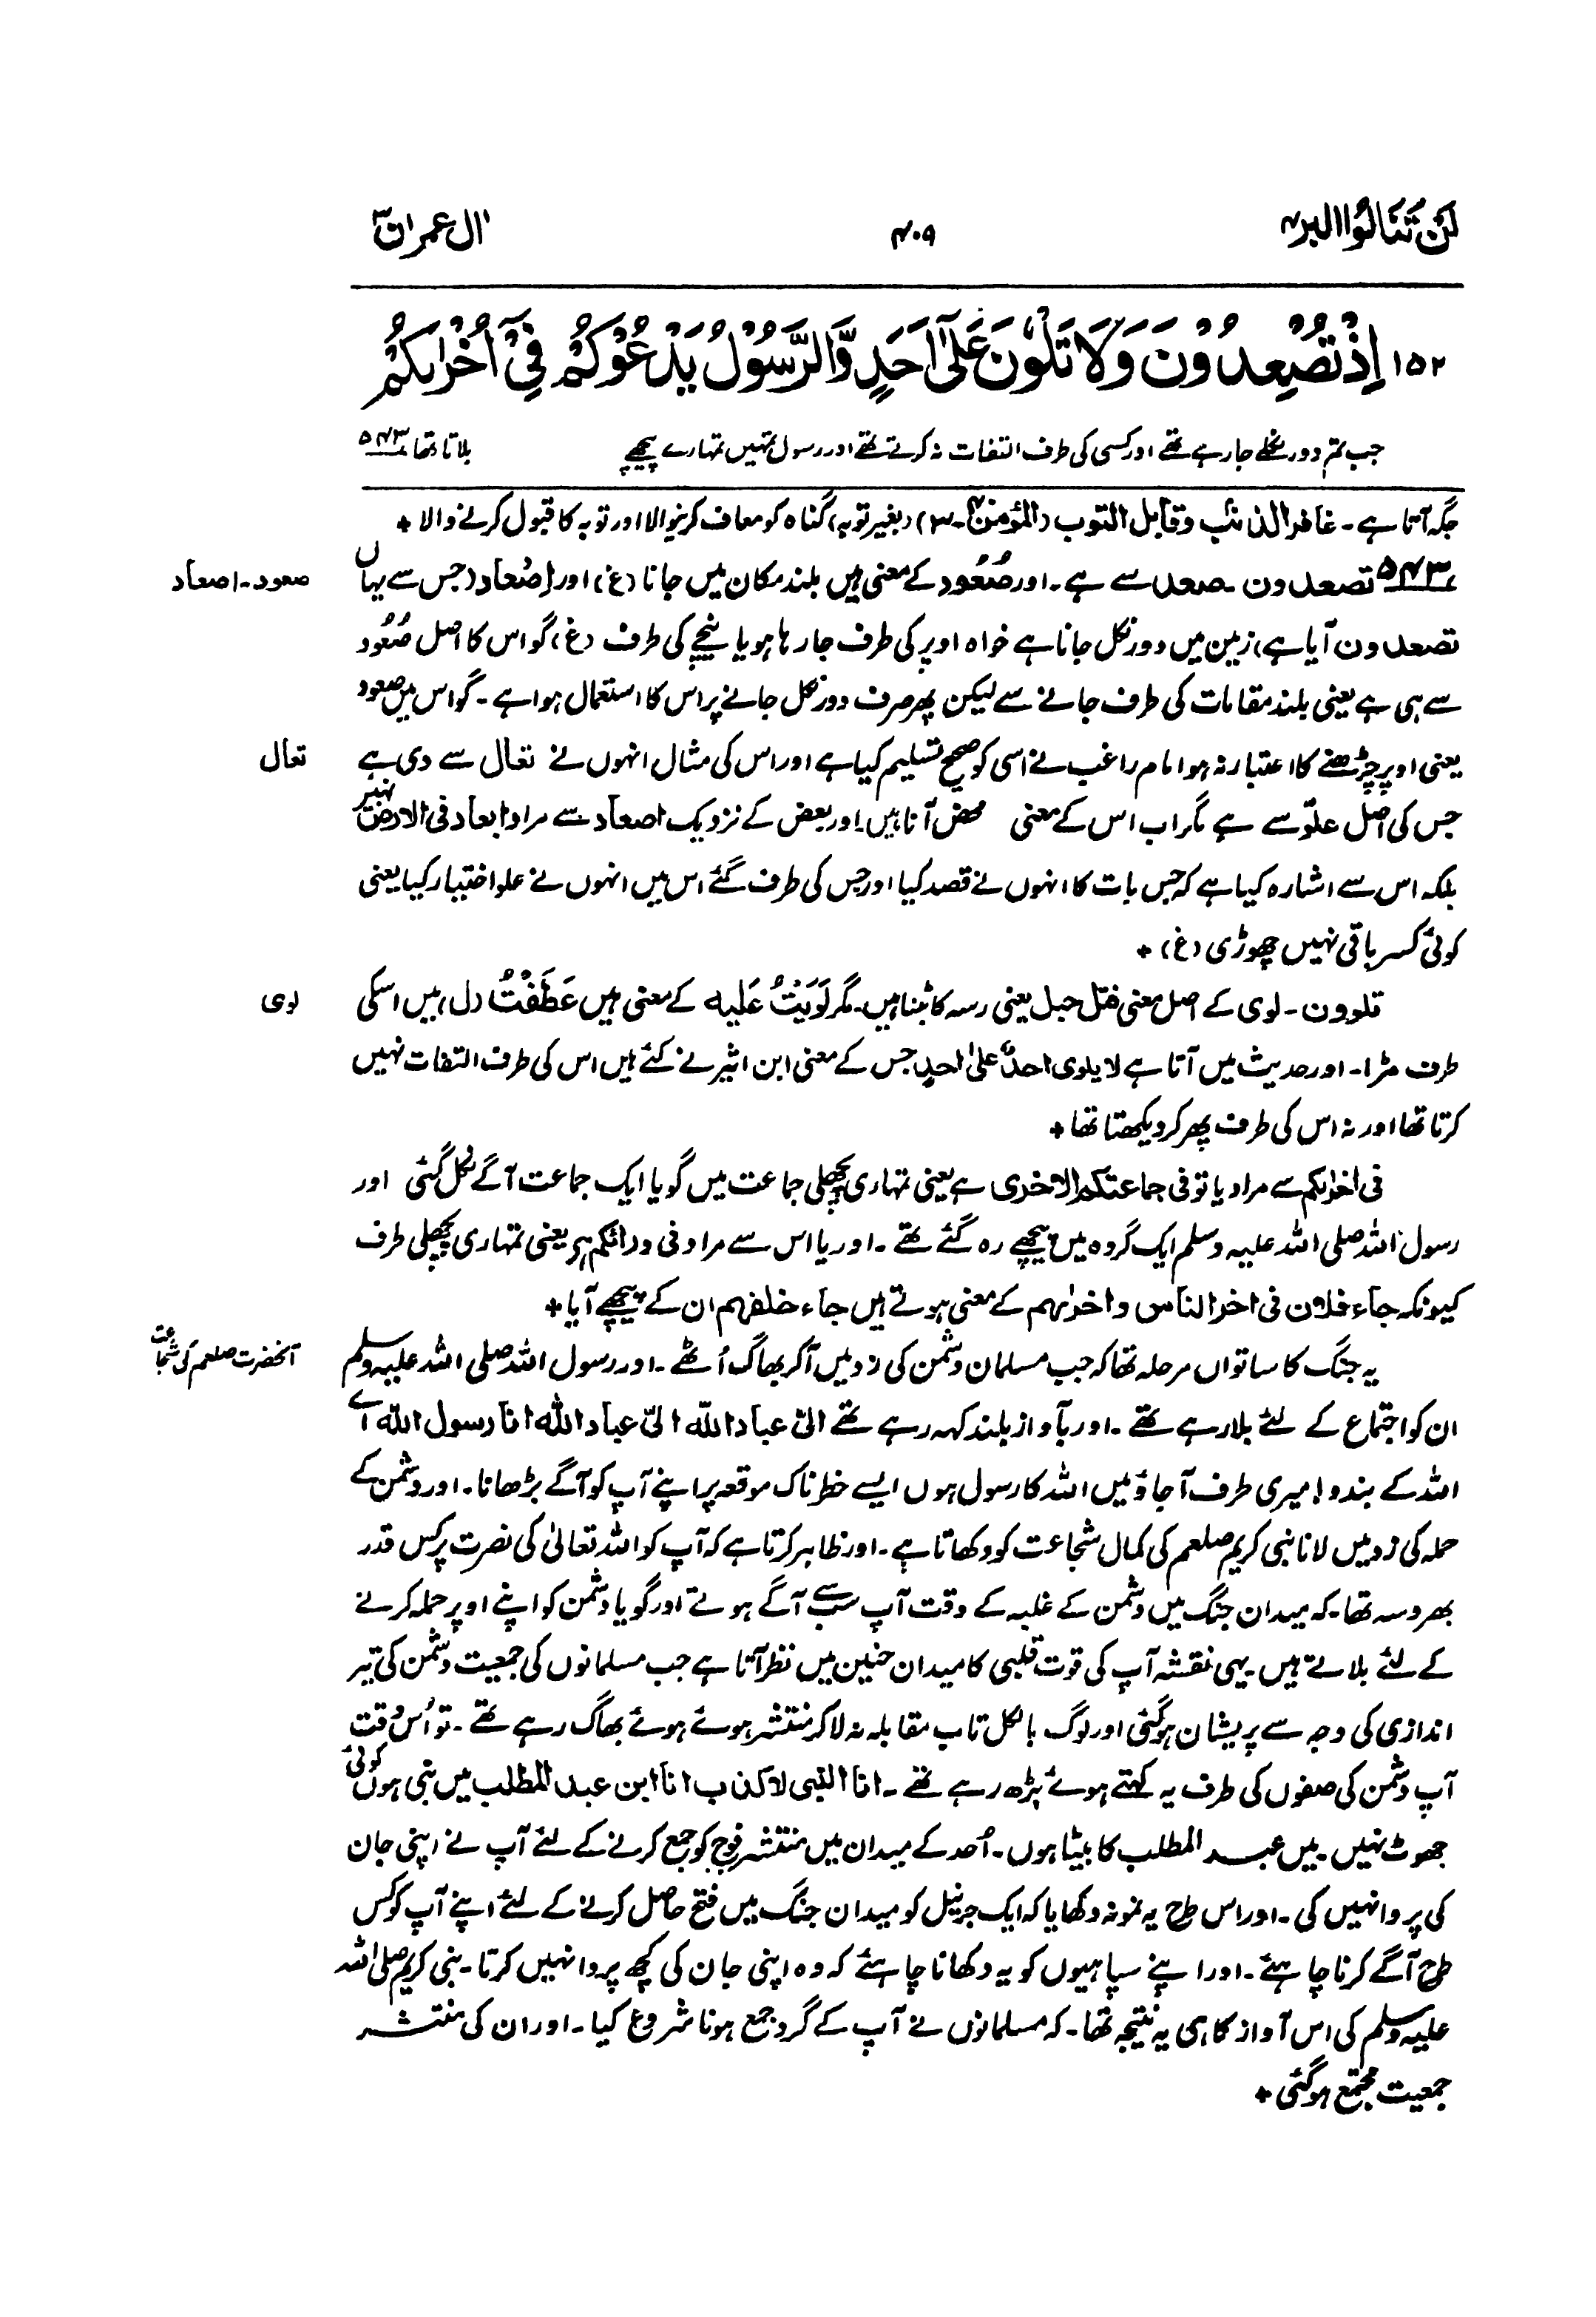 لَنْ تَنَالُوا البر ۴
۴۰۹
اٰل عمران ۳
۱۵۲ اِذْ تُصْعِدُوْنَ وَلَا تَلْوٗنَ عَلٰٓى اَحَدٍ وَّالرَّسُوْلُ يَدْعُوْكُمْ فِيْٓ اُخْرٰىكُمْ
جب تم دور نکلے جا رہے تھے اور کسی کی طرف التفات نہ کرتے تھے اور رسول تمہیں تمہارے پیچھے بلاتا تھا ۵۴۳
جگہ آتا ہے۔ غافر الذنب وقابل التوب (المؤمن۴۰-۳) (بغیر توبہ) گناہ کو معاف کرنیوالا اور توبہ کا قبول کرنے والا +
۵۴۳ تصعدون۔ صعد سے ہے۔ اور صُعُود کے معنی ہیں بلند مکان میں جانا (غ) اور اِصْعاد (جس سے یہاں
صعود۔ اصعاد
تصعدون آیا ہے) زمین میں دور نکل جانا ہے خواہ اوپر کی طرف جا رہا ہو یا نیچے کی طرف (غ) گو اس کا اصل صُعُود
سے ہی ہے یعنی بلند مقامات کی طرف جانے سے لیکن پھر صرف دور نکل جانے پر اس کا استعمال ہوا ہے۔ گو اس میں صعود
یعنی اوپر چڑھنے کا اعتبار نہ ہو امام راغب نے اسی کو صحیح تسلیم کیا ہے اور اس کی مثال انہوں نے تعال سے دی ہے
تعال
جس کی اصل علوّ سے ہے مگر اب اس کے معنی محض آنا ہیں۔ اور بعض کے نزدیک اصعاد سے مراد ابعاد فی الارض نہیں
بلکہ اس سے اشارہ کیا ہے کہ جس بات کا انہوں نے قصد کیا اور جس کی طرف گئے اس میں انہوں نے علو اختیار کیا یعنی
کوئی کسر باقی نہیں چھوڑی (غ) +
تلوون۔ لوی کے اصل معنی فتل حبل یعنی رسہ کا بٹنا ہیں۔ مگر لَوَيْتُ عَلَيه کے معنی ہیں عَطَفْتُ (ل) میں اسکی
لوی
طرف مڑا۔ اور حدیث میں آتا ہے لا یلوی احدٌ علیٰ احدٍ جس کے معنی ابن اثیر نے کئے ہیں اس کی طرف التفات نہیں
کرتا تھا اور نہ اس کی طرف پھر کر دیکھتا تھا +
فی اخرٰىکم سے مراد یا تو فی جماعتکم الاخری ہے یعنی تمہاری پچھلی جماعت میں گویا ایک جماعت آگے نکل گئی اور
رسول اللہ صلی اللہ علیہ وسلم ایک گروہ میں پیچھے رہ گئے تھے۔ اور یا اس سے مراد فی ورائکم ہے یعنی تمہاری پچھلی طرف
کیونکہ جاء فلان فی اخر الناس و اخرٰىهم کے معنی ہوتے ہیں جاء خلفهم ان کے پیچھے آیا +
یہ جنگ کا ساتواں مرحلہ تھا کہ جب مسلمان دشمن کی زد میں آکر بھاگ اُٹھے۔ اور رسول اللہ صلی اللہ علیہ وسلم
آنحضرت صلعم کی شجاعت
ان کو اجتماع کے لئے بلا رہے تھے۔ اور بآواز بلند کہہ رہے تھے الیّ عباد اللّٰه الیّ عباد اللّٰه انا رسول اللّٰه اے
اللہ کے بندو! میری طرف آجاؤ میں اللہ کا رسول ہوں ایسے خطرناک موقعہ پر اپنے آپ کو آگے بڑھانا۔ اور دشمن کے
حملہ کی زد میں لانا نبی کریم صلعم کی کمال شجاعت کو دکھاتا ہے۔ اور ظاہر کرتا ہے کہ آپ کو اللہ تعالیٰ کی نصرت پر کس قدر
بھروسہ تھا۔ کہ میدان جنگ میں دشمن کے غلبہ کے وقت آپ سب سے آگے ہوتے اور گویا دشمن کو اپنے اوپر حملہ کرنے
کے لئے بلاتے ہیں۔ یہی نقشہ آپ کی قوت قلبی کا میدان حنین میں نظر آتا ہے جب مسلمانوں کی جمعیت دشمن کی تیر
اندازی کی وجہ سے پریشان ہوگئی اور لوگ بالکل تاب مقابلہ نہ لا کر منتشر ہوئے ہوئے بھاگ رہے تھے۔ تو اُس وقت
آپ دشمن کی صفوں کی طرف یہ کہتے ہوئے بڑھ رہے تھے۔ انا النبی لا کذب انا ابن عبد المطلب میں نبی ہوں کوئی
جھوٹ نہیں۔ میں عبد المطلب کا بیٹا ہوں۔ اُحد کے میدان میں منتشر فوج کو جمع کرنے کے لئے آپ نے اپنی جان
کی پروا نہیں کی۔ اور اس طرح یہ نمونہ دکھایا کہ ایک جرنیل کو میدان جنگ میں فتح حاصل کرنے کے لئے اپنے آپ کو کس
طرح آگے کرنا چاہئے۔ اور اپنے سپاہیوں کو یہ دکھانا چاہئے کہ وہ اپنی جان کی کچھ پروا نہیں کرتا۔ نبی کریم صلی اللہ
علیہ وسلم کی اس آواز کا ہی یہ نتیجہ تھا۔ کہ مسلمانوں نے آپ کے گرد جمع ہونا شروع کیا۔ اور ان کی منتشر
جمعیت مجتمع ہوگئی +